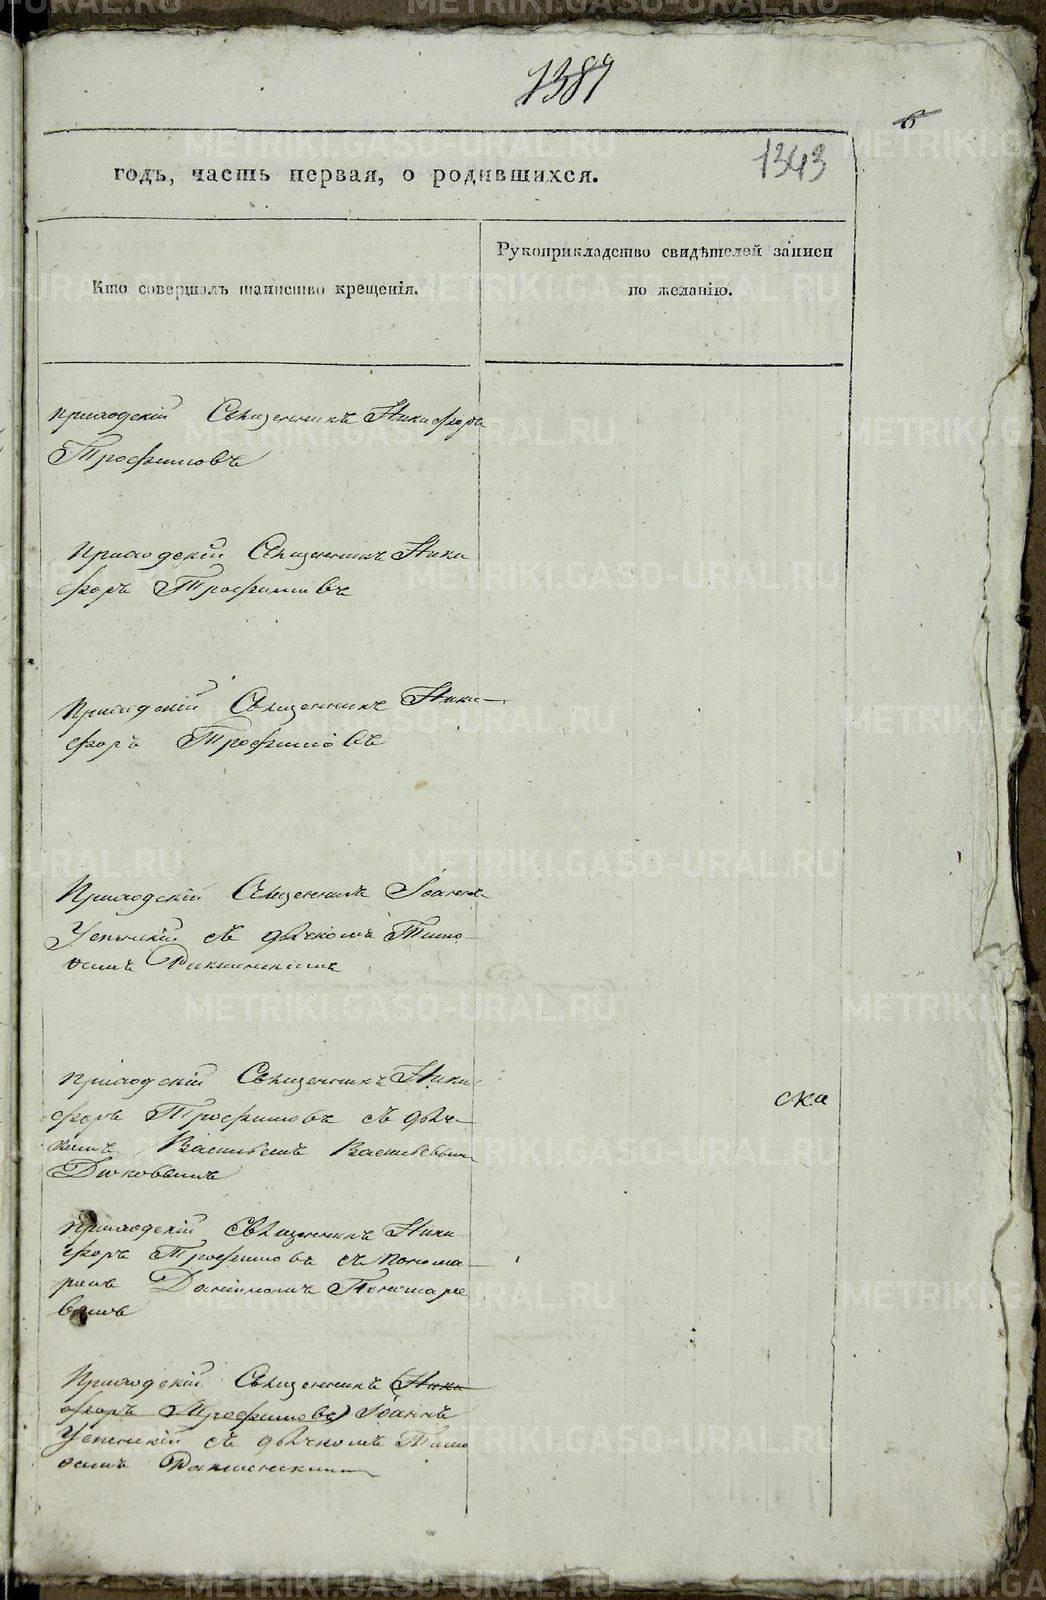 1381
6
1343
годъ, часть первая, о родившихся.
Кто совершалъ таинство крещенія.
Рукоприкладство свидѣтелей записи
по желанію.
приходскій Священникъ Никифоръ
Трофимовъ
приходскій Священникъ Ники
форъ Трофимовъ
приходскій Священникъ Ники-
форъ Трофимовъ
приходскій Священникъ Іоаннъ
Успенскій съ дьячкомъ Тимо-
ѳеемъ
приходскій Священникъ Ники
форъ Трофимовъ съ дьяч-
комъ Васильемъ Васильевым
Дьяковымъ
ска
приходскій Священникъ Ники
форъ Трофимовъ съ понома-
ремъ Пономаре
вымъ
Приходскій Священникъ (Ники
форъ Трофимовъ) Іоаннъ
Успенскій съ дьячкомъ Тимо
ѳеемъ
METRIKI.GASO-URAL.RU